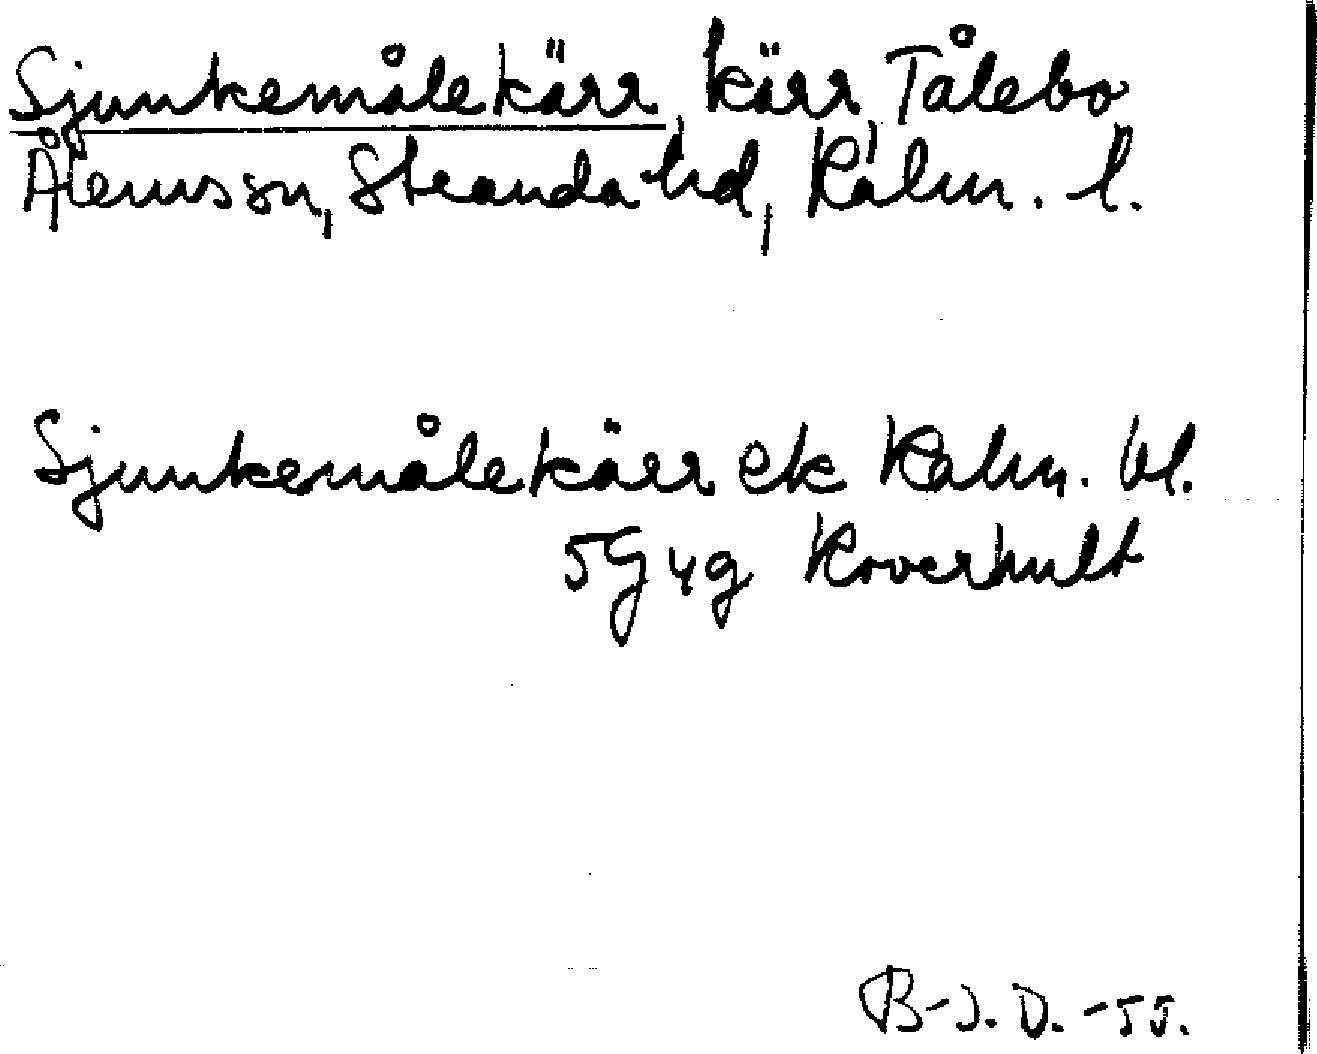 Sjunkemålekärr, kärr, Tålebo
Ålemssn, Stranda hd, Kalm. l.
Sjunkemålekärr ek Kalm. bl.
5G4g Kroverhult
B-J. D. -55.